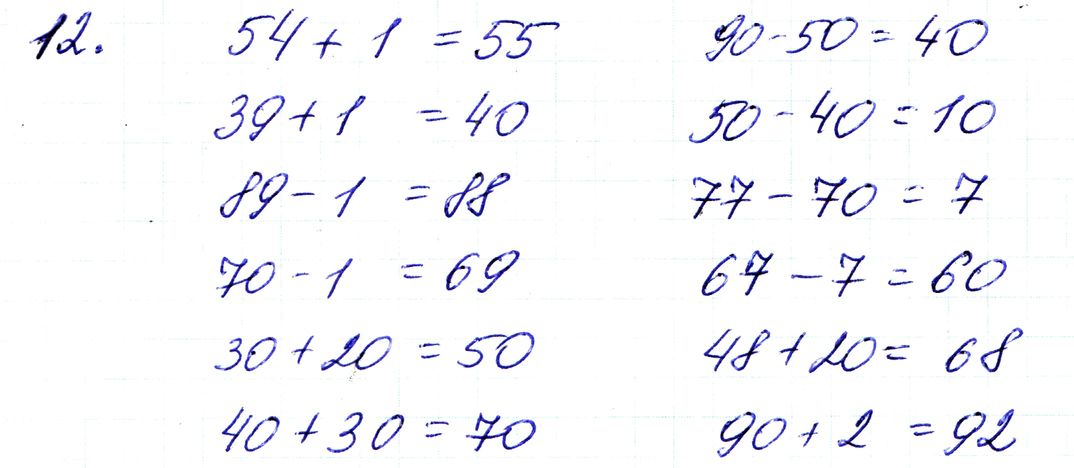 12. 54 + 1 = 55 90 - 50 = 40
39 + 1 = 40 50 - 40 = 10
89 - 1 = 88 77 - 70 = 7
70 - 1 = 69 67 - 7 = 60
30 + 20 = 50 48 + 20 = 68
40 + 30 = 70 90 + 2 = 92